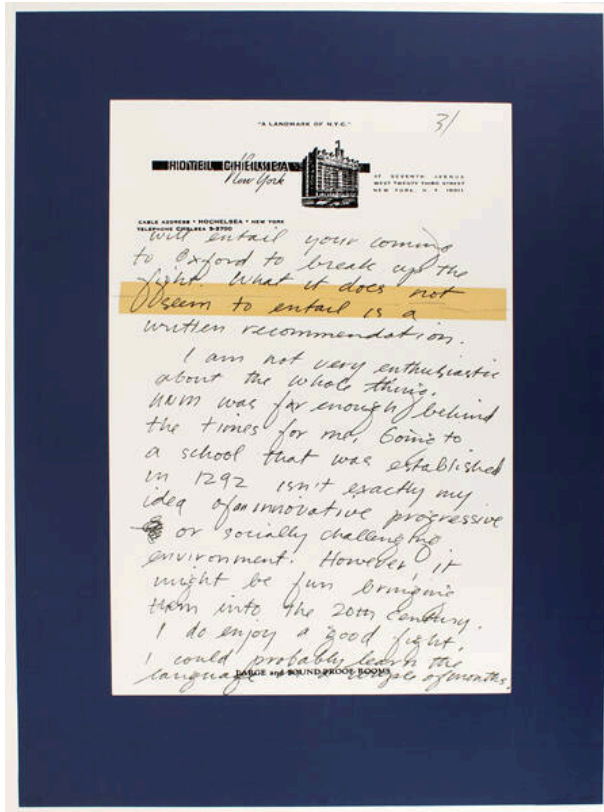 "A LANDMARK OF N.Y.C."
31
HOTEL CHELSEA
New York
AT SEVENTH AVENUE
WEST TWENTY THIRD STREET
NEW YORK, N. Y. 10011
CABLE ADDRESS • HOCHELSEA • NEW YORK
TELEPHONE CHELSEA 3-3700
will entail your coming
to Oxford to break up the
fight. What it does not
seem to entail is a
written recommendation.
I am not very enthusiastic
about the whole thing.
was far enough behind
the times for me. Going to
a school that was established
in 1292 isn't exactly my
idea of an innovative progressive
or socially challenging
environment. However, it
might be fun bringing
them into the 20th century.
I do enjoy a good fight.
I could probably learn the
language couple of months.
LARGE and SOUND PROOF ROOMS